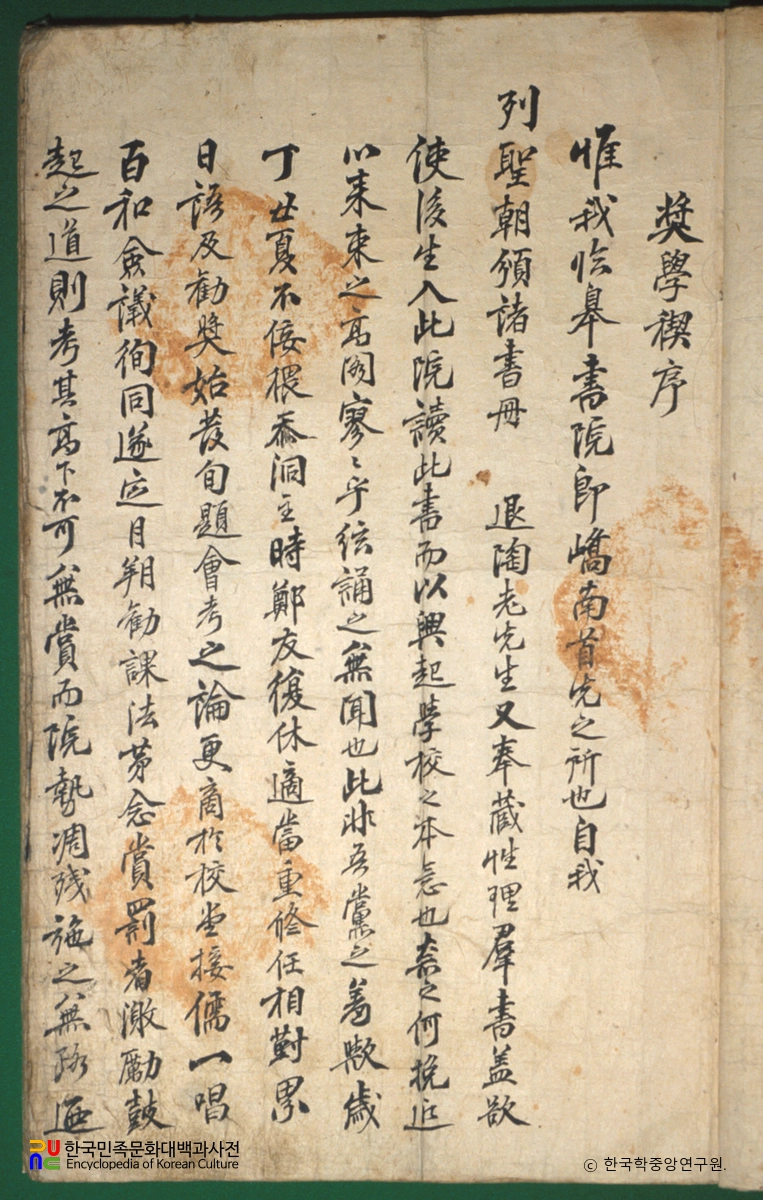 奬學稧序
惟我臨皋書院卽嶠南首先之所也自我
列聖朝頒諸書冊 退陶老先生又奉藏性理羣書盖欲
使後生入此院讀此書而以興起學校之本意也奈之何挽近
以來束之高閣寥〻乎絃誦之無聞也此非吾黨之羞歟歲
丁丑夏不佞猥忝洞主時鄭友復休適當重修任相對累
日語及勸奬始發旬題會考之論更商於校坐接儒一唱
百和僉議徇同遂定月朔勸課法第念賞罰者激勵鼓
起之道則考其高下不可無賞而院勢凋殘施之無路
한국민족문화대백과사전
Encyclopedia of Korean Culture
ⓒ 한국학중앙연구원.